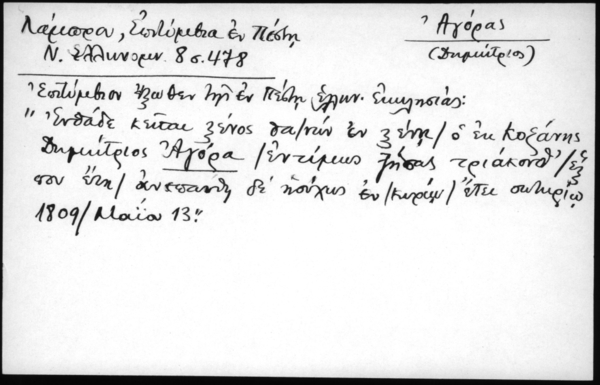 Λάμπρου, Ἐπιτύμβια ἐν Πέστῃ
Ν. Ἑλληνομν. 8 σ. 478
Ἀγόρας
(Δημήτριος)
Ἐπιτύμβιον ἔξωθεν τῆς ἐν Πέστῃ ἑλλην. ἐκκλησίας:
"Ἐνθάδε κεῖται ξένος θανὼν ἐν ξένῃ / ὁ ἐκ Κοζάνης
Δημήτριος Ἀγόρα / ἐντίμως ζήσας τριάκονθ' / ἓξ
που ἔτη / ἀνεπαύθη δὲ ἡσύχως ἐν / κυρίῳ / ἔτει σωτηρίῳ
1809 / Μαΐου 13."